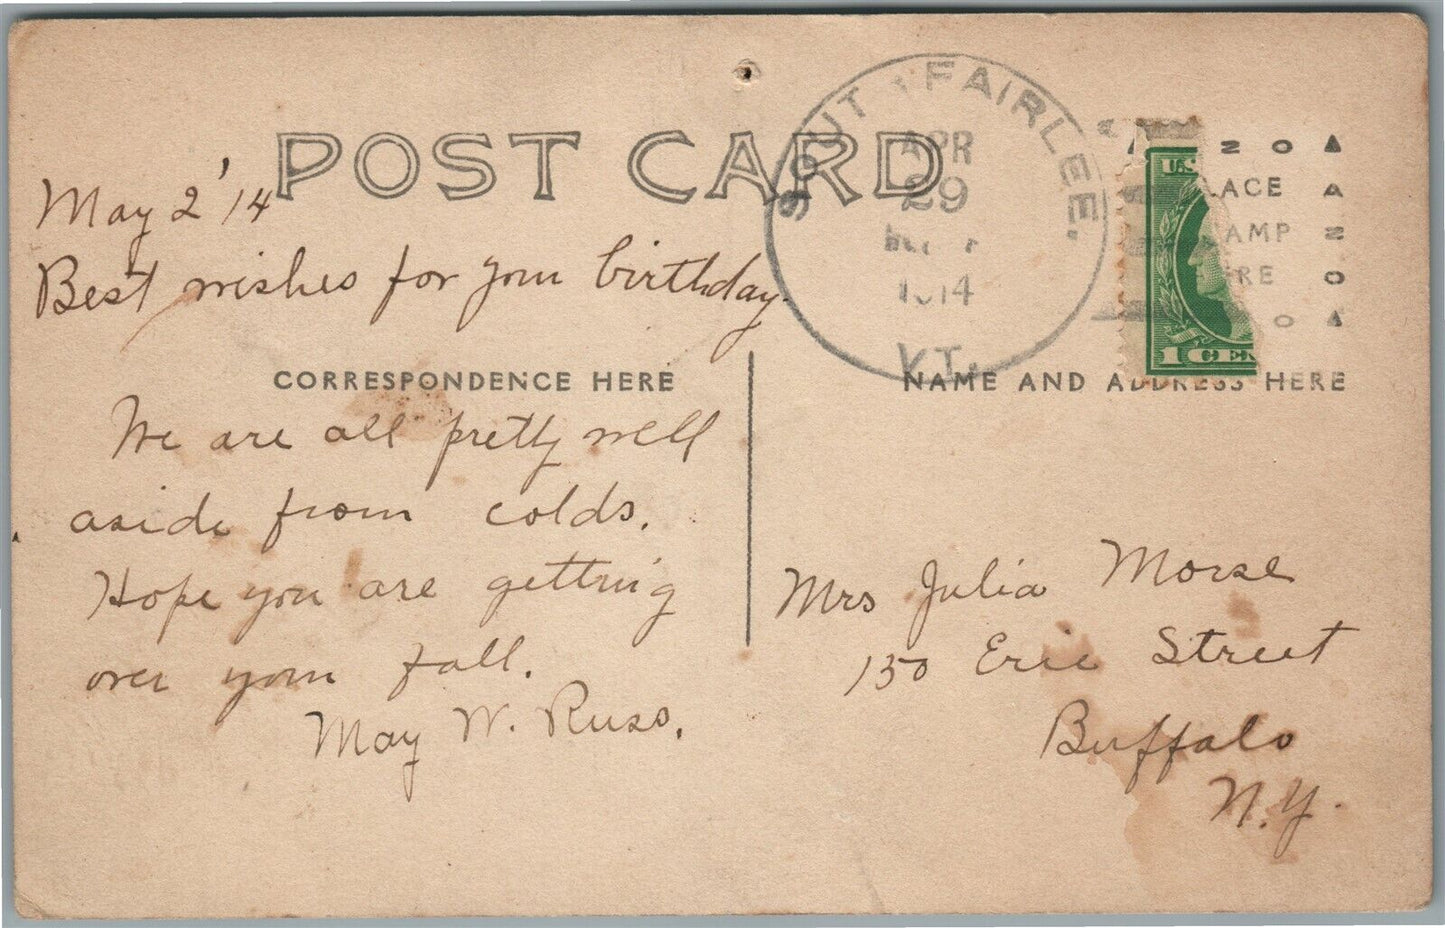 POST CARD
SOUTH FAIRLEE.
APR
29
1914
VT.
U.S.
1 CEN
AZO
LACE
AMP
ERE
AZO
May 2 '14
Best wishes for your birthday.
CORRESPONDENCE HERE
NAME AND ADDRESS HERE
We are all pretty well
aside from colds.
Hope you are getting
over your fall.
May W. Russ.
Mrs Julia Morse
150 Erie Street
Buffalo
N.Y.